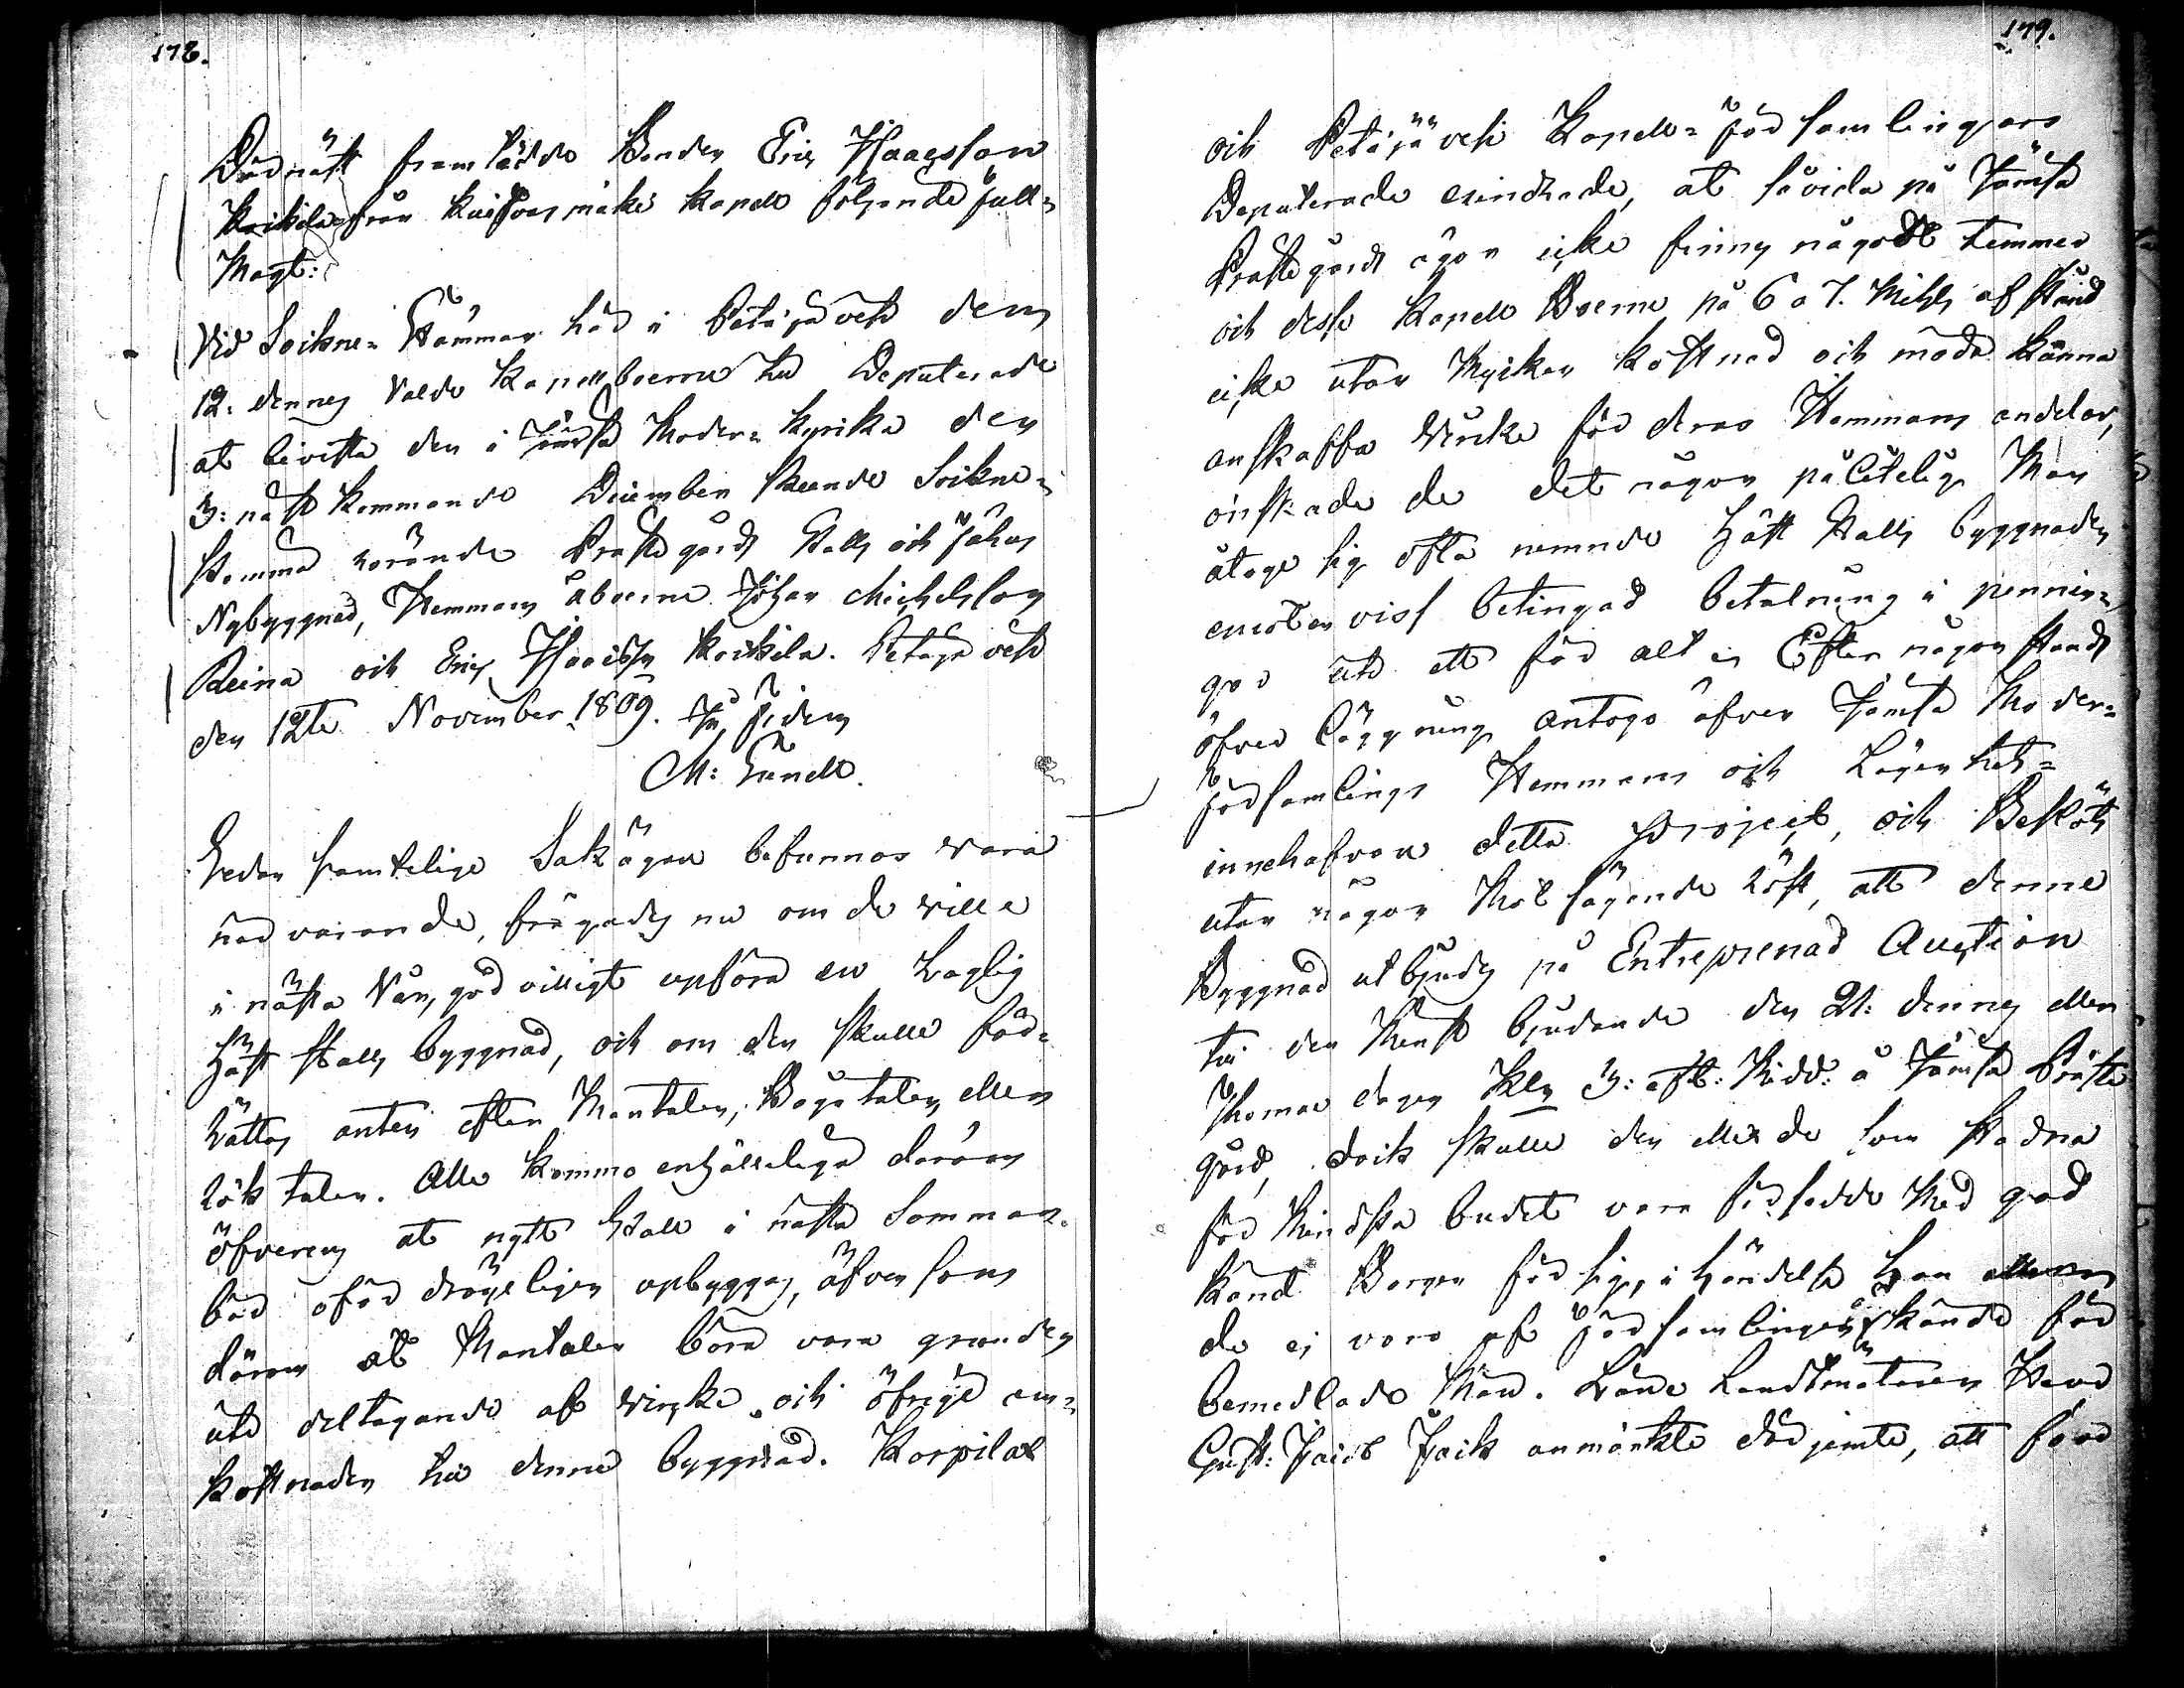 178.
Därnäst framlade Bonden Eric Isaacsson
Koikila från Kuifvasmäki Kapell följande full-
Magt:
Vid Sokne-Stämman här i Petäjävesi den
12: dennes valde Kapellboerne till Deputerade
at bivista den i Jämsä Moder-Kyrcka den
3: näst kommande December skeende Sockne-
stemma rörande Prästegårds Stalls och Fähus
Nybyggnad, Hemmans åboerne Johan Michelsson
Reina och Eric Isacsson Koikila. Petäjävesi
den 12te November 1809. In fidem
M: Lundell.
Sedan samtelige Sakägare befunnos vara
närvarande, frågades nu om de ville
i nästa Vår, godvilligt upföra en Laglig
Häst stalls byggnad, och om den skulle för-
rättas anten efter Mantalen, Bågatalen eller
Röktalen. Alle kommo enhälleligen däröm
öfverens at nytt Stall i nästa Sommar
bör ofördröjeligen upbyggas, äfven som
därom at Mantalen böra vara grunden
uti deltagande af virke och öfrige om-
kostnaden till denne byggnad. Korpilax
179.
och Petäjävesi Kapell-Församlingars
Deputerade erindrade, at såvida på Jämsä
Prästegårds ägor icke finnes någodt timmer
och desse Kapell Boerne på 6 a 7. Mihls afstånd
icke utan Mycken kostnad och möda kunna
anskaffa Virke för deras Hemmans andelar,
önskade de det någon pålitelig Man
åtoge sig ofta nemnde Häst Stalls byggnaden
emot en viss betingad betalning i pennin-
gar uti ett för alt. Efter någon stunds
öfverläggning antogo äfven Jämsä Moder-
församlings Hemmans och Lägenhets-
innehafvare detta project, och Beslöts
utan någon Motsägande röst, att denne
Byggnad utbjudes på Entreprenad Auction
till den Minst bjudande den 21: dennes eller
Thomae dagen Klo 3: eft: Midd: å Jämsä Präste
gård, dock skulle den eller de som stadna
för Mindsta budet vara försedde Med god
känd Borgen för sig, i händelse han eller
de ej voro af Församlingen kände för
bemedlade Män. Härå Landtmätaren Herr
Gust: Jacob Jack anmärkte därjemte, att förr